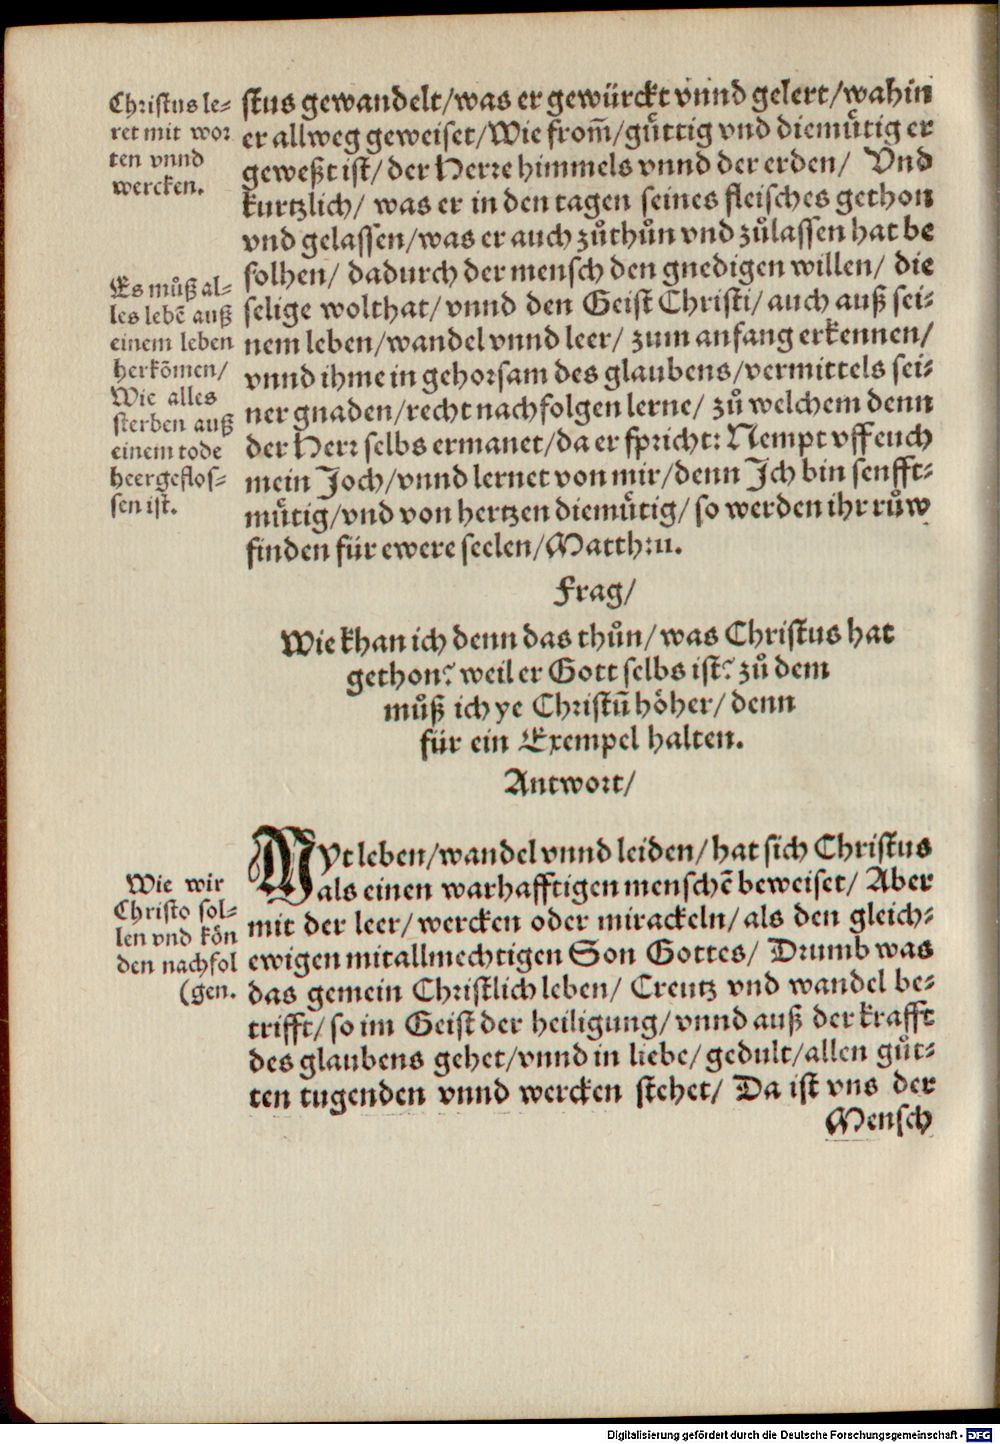 Christus le=
ret mit wor
ten vnnd
wercken.
stus gewandelt/was er gewürckt vnnd gelert/wahin
er allweg geweiset/Wie from̃/guͤttig vnd diemuͤtig er
geweßt ist/ der Herre himmels vnnd der erden/ Vnd
kurtzlich/ was er in den tagen seines fleisches gethon
vnd gelassen/was er auch zuͦthuͦn vnd zuͦlassen hat be
solhen/ dadurch der mensch den gnedigen willen/ die
selige wolthat/vnnd den Geist Christi/ auch auß sei=
nem leben/wandel vnnd leer/ zum anfang erkennen/
vnnd ihme in gehorsam des glaubens/vermittels sei=
ner gnaden/recht nachfolgen lerne/ zuͦ welchem denn
der Herr selbs ermanet/da er spricht: Nempt vff euch
mein Joch/vnnd lernet von mir/denn Ich bin senfft=
muͤtig/vnd von hertzen diemuͤtig/ so werden ihr ruͦw
finden für ewere seelen/Matth:11.
Es muͦß al=
les lebẽ auß
einem leben
herkõmen/
Wie alles
sterben auß
einem tode
heergeflos=
sen ist.
Frag/
Wie khan ich denn das thuͦn/was Christus hat
gethon? weil er Gott selbs ist? zuͦ dem
muͦß ich ye Christũ hoͤher/ denn
für ein Exempel halten.
Antwort/
Wie wir
Christo sol=
len vnd koͤn
den nachfol
(gen.
Myt leben/wandel vnnd leiden/hat sich Christus
als einen warhafftigen menschẽ beweiset/ Aber
mit der leer/wercken oder mirackeln/als den gleich=
ewigen mitallmechtigen Son Gottes/ Drumb was
das gemein Christlich leben/ Creutz vnd wandel be=
trifft/so im Geist der heiligung/vnnd auß der krafft
des glaubens gehet/vnnd in liebe/gedult/allen guͦt=
ten tugenden vnnd wercken stehet/ Da ist vns der
Mensch
Digitalisierung gefördert durch die Deutsche Forschungsgemeinschaft - DFG